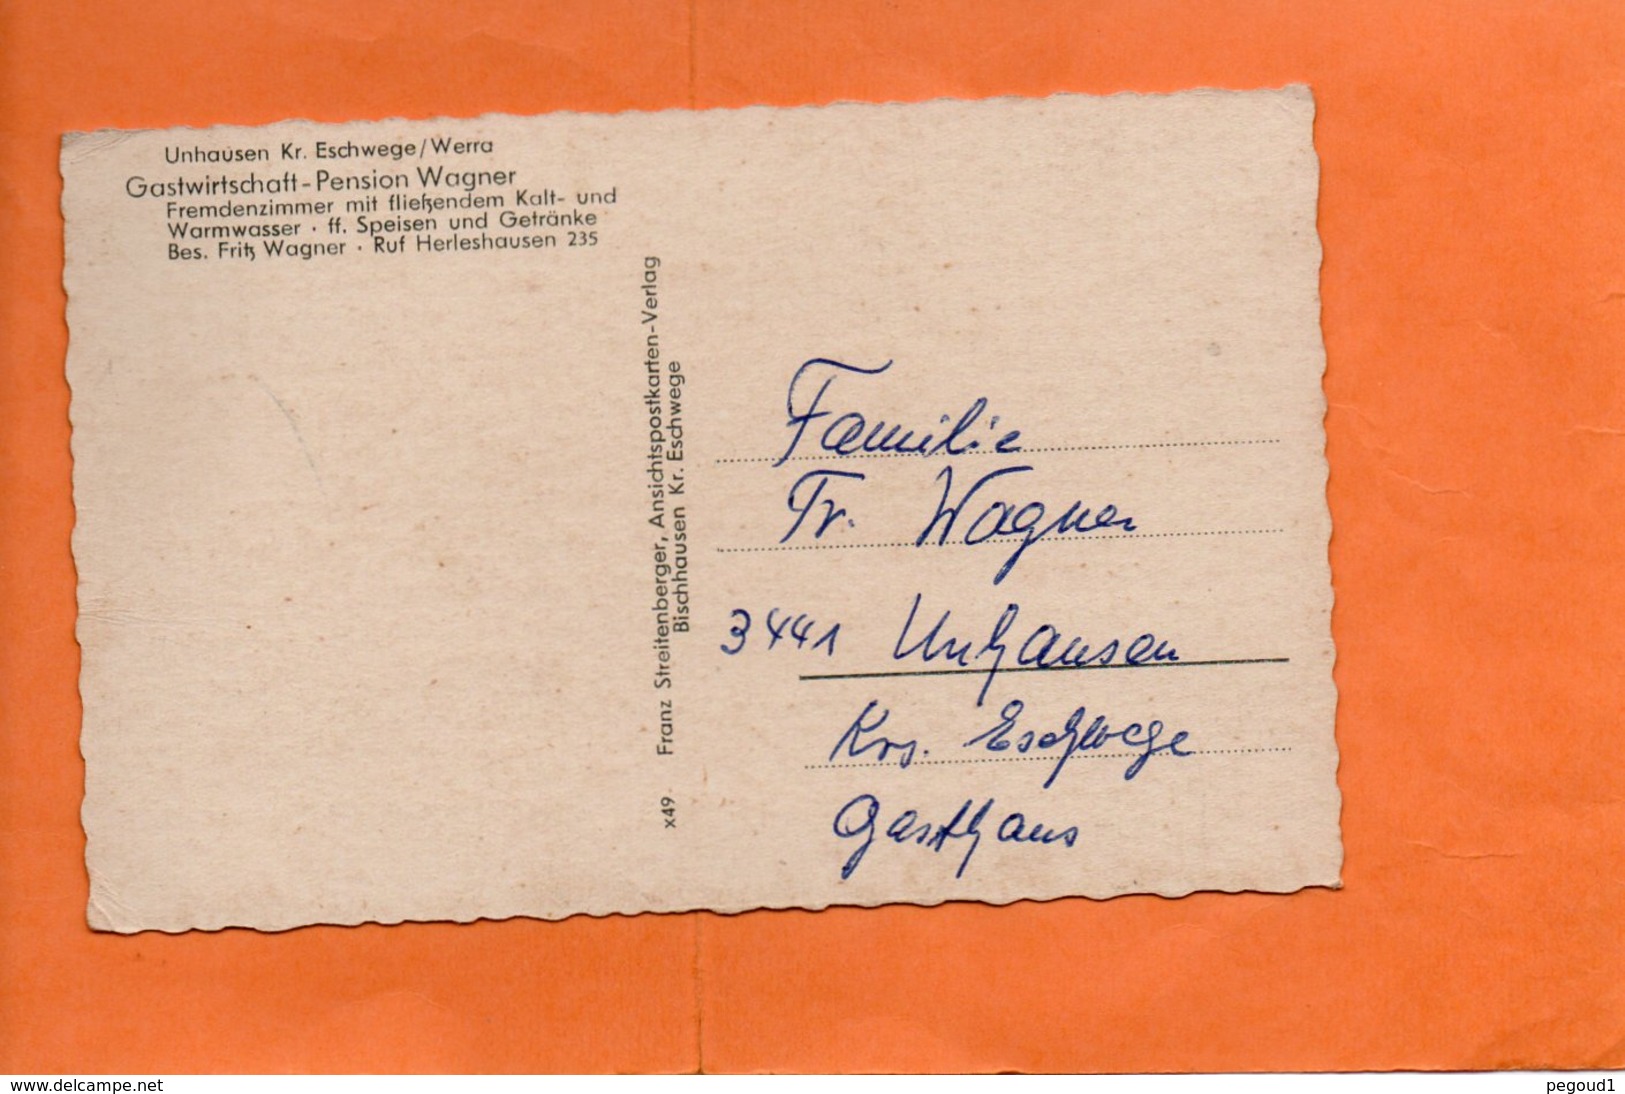 Unhausen Kr. Eschwege/Werra
Gastwirtschaft-Pension Wagner
Fremdenzimmer mit fließendem Kalt- und
Warmwasser · ff. Speisen und Getränke
Bes. Fritz Wagner · Ruf Herleshausen 235
x49 Franz Streitenberger, Ansichtspostkarten-Verlag
Bischhausen Kr. Eschwege
Familie
Fr. Wagner
3441 Unhausen
Krs. Eschwege
Gasthaus
www.delcampe.net
pegoud1